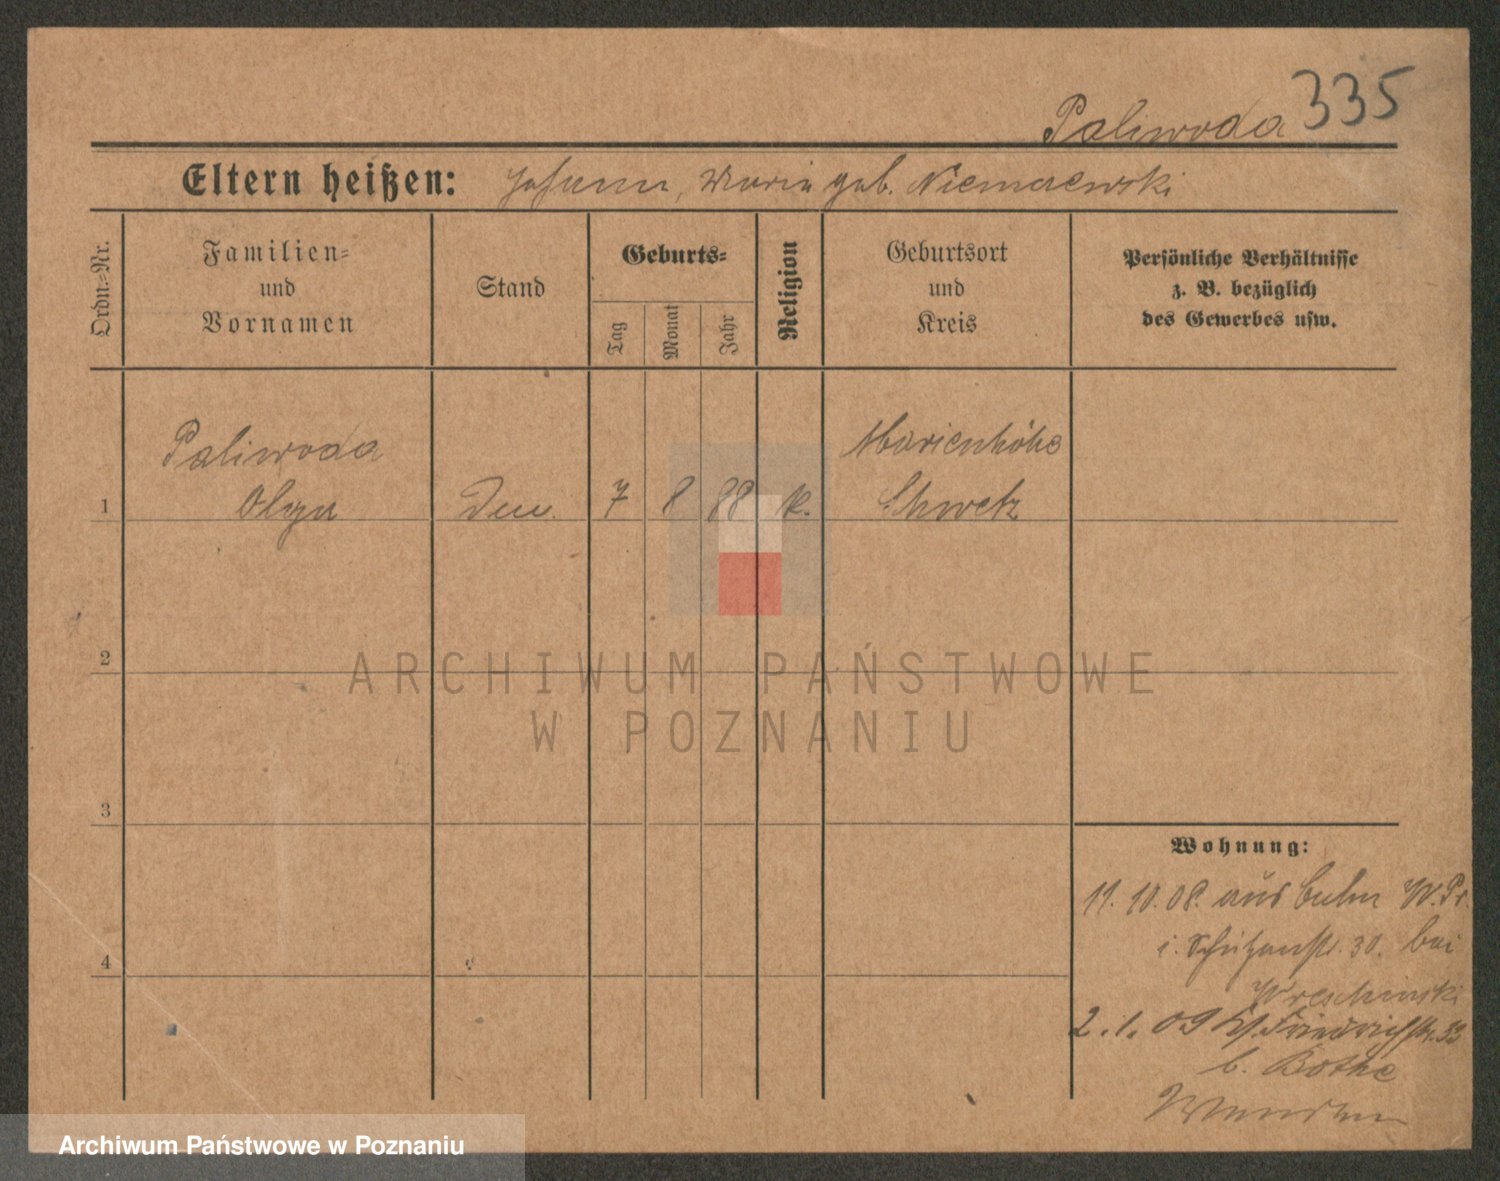 Paliwoda 335
Eltern heißen: Johann, Maria geb. Niemaewski
Ordn.-Nr.
Familien-
und
Vornamen
Stand
Geburts-
Tag
Monat
Jahr
Religion
Geburtsort
und
Kreis
Persönliche Verhältnisse
z. B. bezüglich
des Gewerbes usw.
Paliwoda Marienhöhe
1 Olga 7 8 88 k. Schwetz
2
ARCHIWUM PAŃSTWOWE
W POZNANIU
3
Wohnung:
11. 10. 08. aus Culm W. Pr.
4 i. Schützenstr. 30. bei
Wreschinski
2. 1. 09 Friedrichstr. 33
b. Bothe
Archiwum Państwowe w Poznaniu